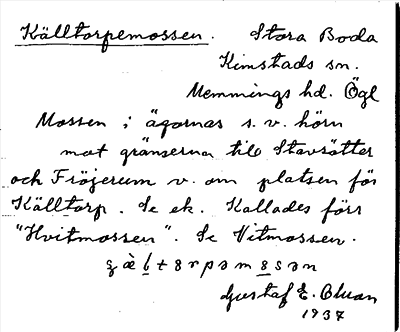 Källtorpemossen. Stora Boda
Kimstads sn.
Memmings hd. Ögl
Mossen i ägornas s. v. hörn
mot gränserna till Stavsätter
och Fröjerum v. om platsen för
Källtorp. Se ek. Kallades förr
"Hvitmossen". Se Vitmossen.
Gustaf E. Bluan
1937